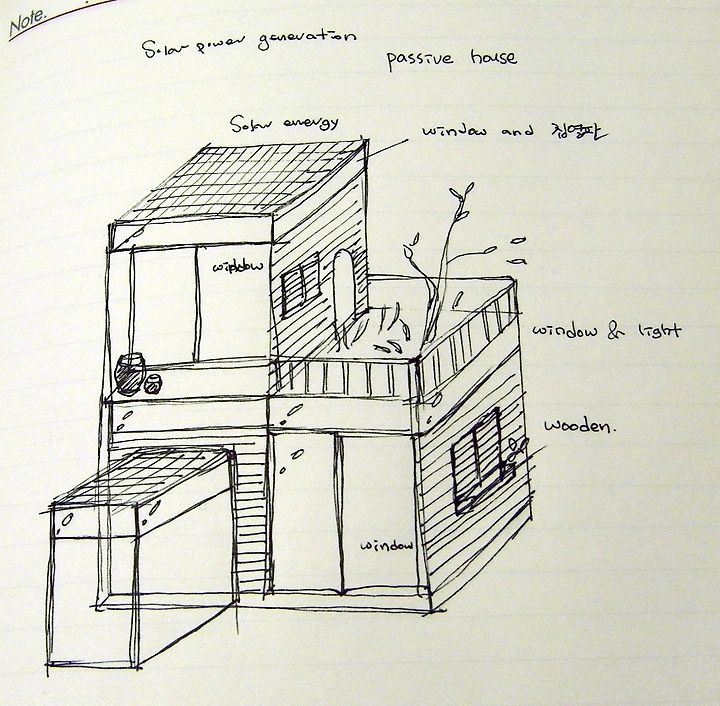 Note.
Solar power generation
passive house
Solar energy
window and 집열판
window
window & light
wooden.
window